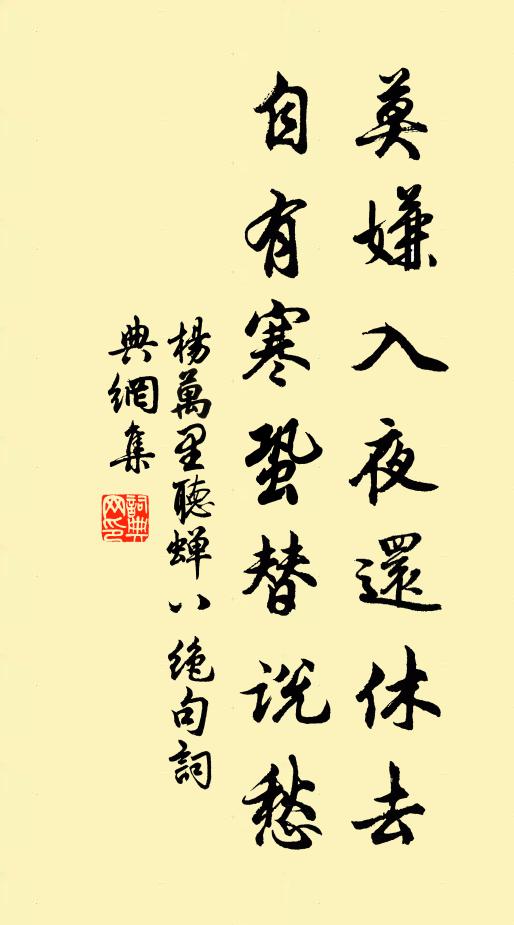 莫嫌入夜還休去
自有寒蛩替說愁
楊萬里聽蟬八絕句詞
典網集
詞典網印